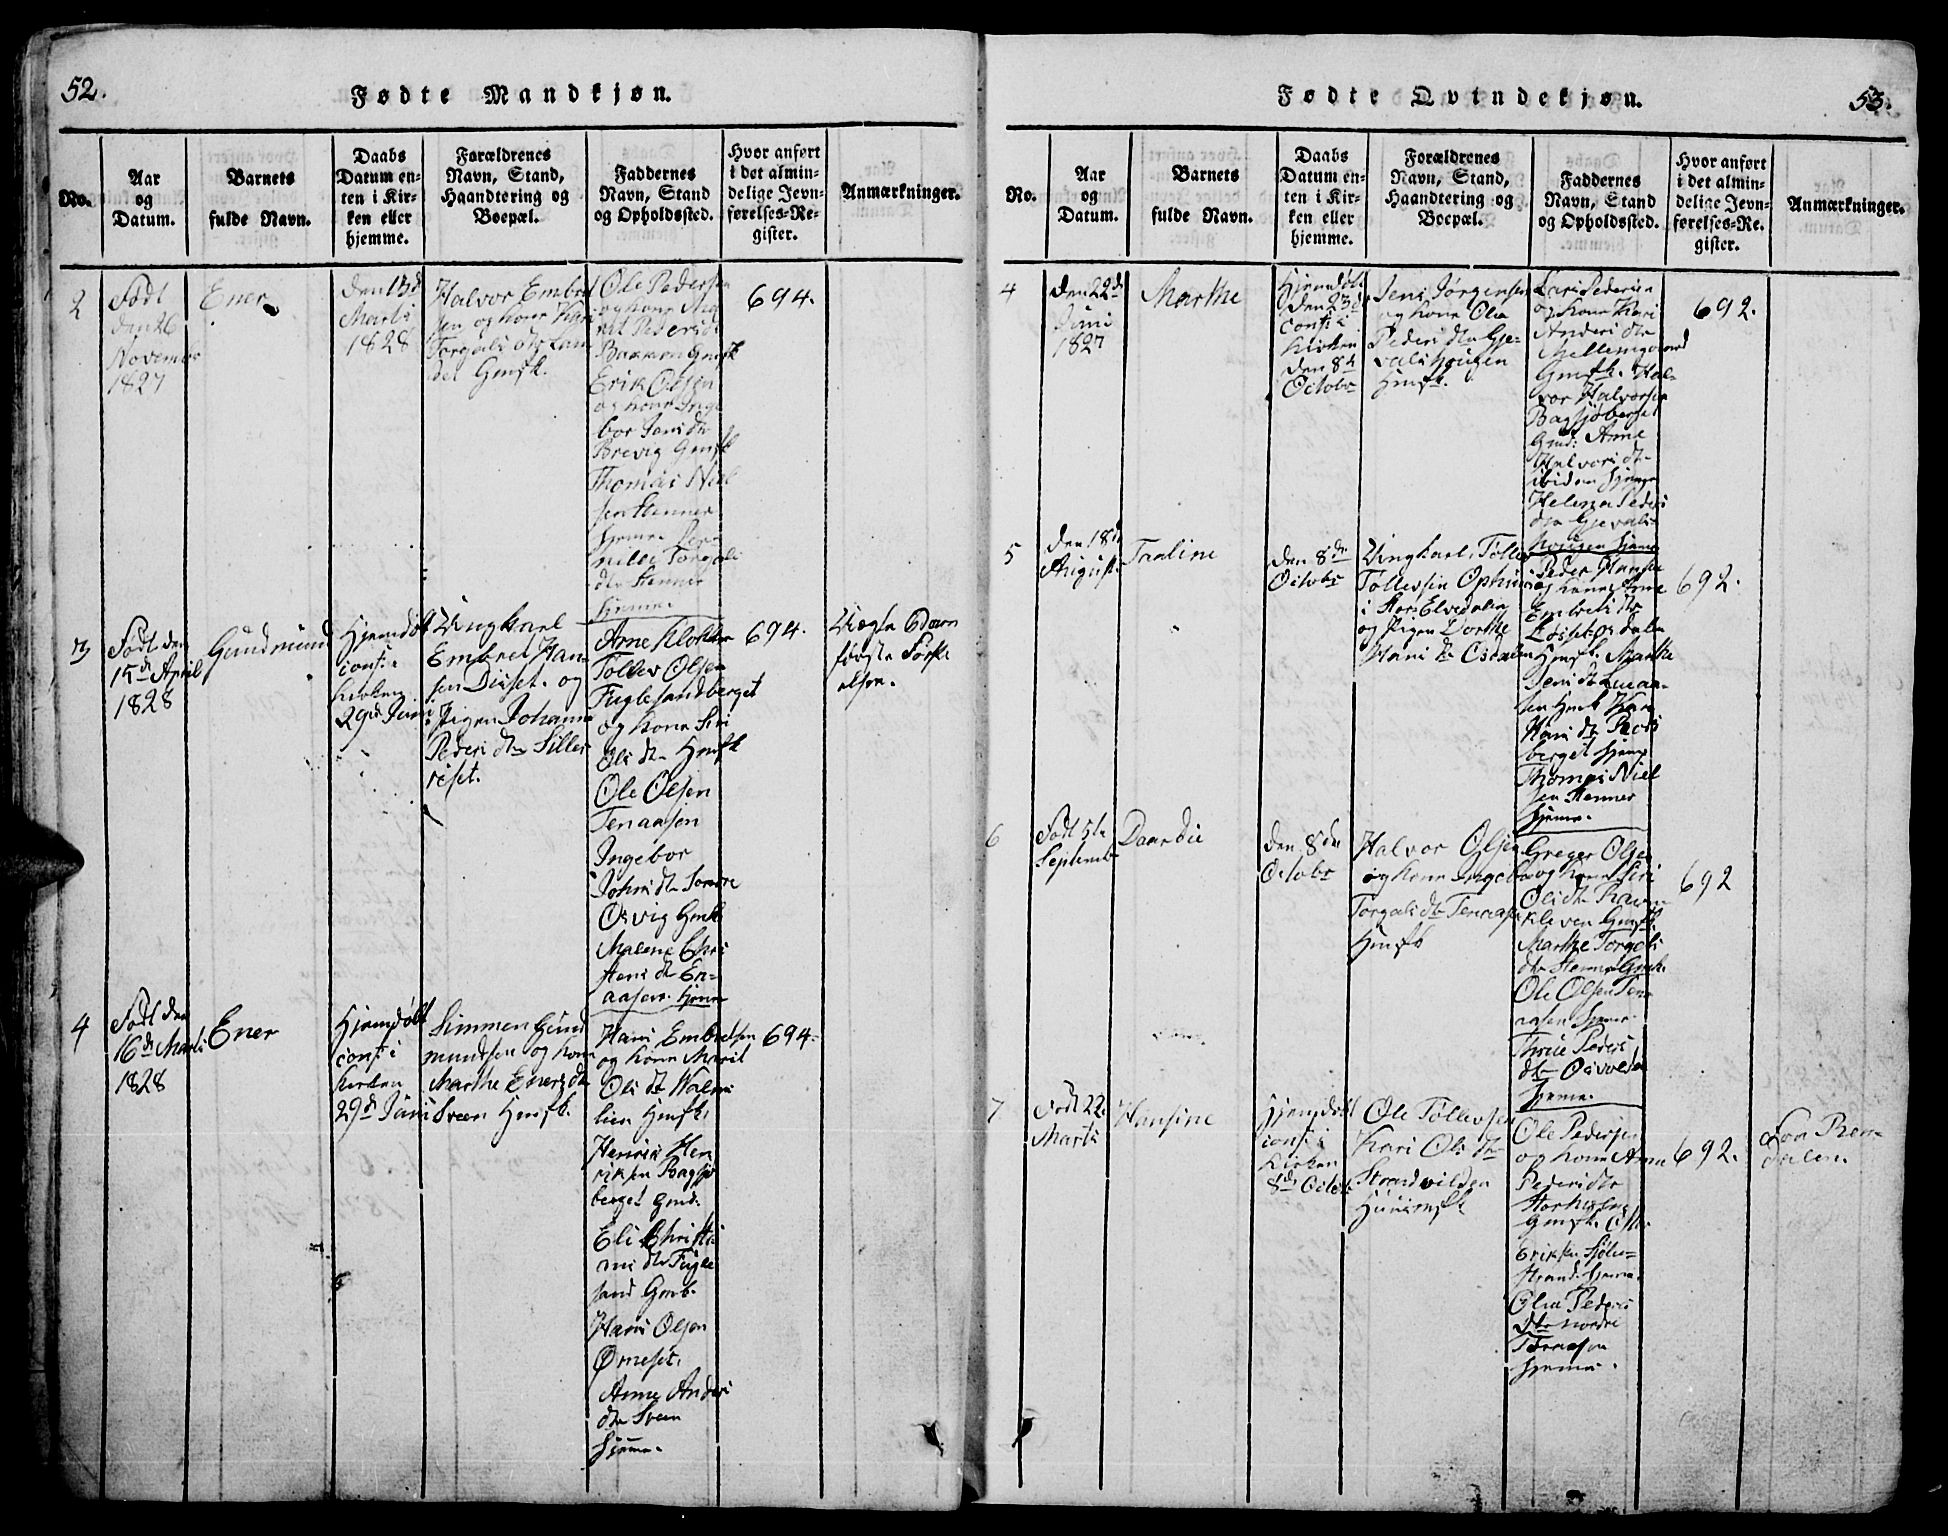 52.
Fødte Mandkjøn.
No.
Aar
og
Datum.
Barnets
fulde Navn.
Daabs
Datum en-
ten i Kir-
ken eller
hjemme.
Forældrenes
Navn, Stand,
Haandtering og
Boepæl.
Faddernes
Navn, Stand
og Opholdssted.
Hvor anført
i det almin-
delige Jevn-
førelses-Re-
gister.
Anmærkninger.
2
Født
den 26
November
1827
Ener
den 13d
Marts
1828
Halvor Embret
sen og kone Kari
Torgals dtr
Gmsk.
Ole Pedersen
og kone Ma
rit Peders
Bakken Gmsk
Erik Olsen
og kone Inge
bor Jensdtr
Brevig Gmsk
Thomas Niel
sen Stenner
hjeme. Per
nille Torgals
dtr Stenner
hjeme.
694.
3
Født den
15de April
1828
Gundmund
Hjemdøbt
conf: i
Kirken
29de Juni
Ungkarl
Embret Han-
sen Disset. og
Pigen Johanne
Peders dtr Siller
eset.
Arne Klokker
Tollev Olsen
Fuglesandberget
og kone Siri
Ols dtr Hmsk
Ole Olsen
Tenaasen
Ingebor
Johns dtr Søndre
Osvig Gmsk
Malene Chri
stens dtr En-
aasen. hjeme
694.
Uægte
første
4
Født den
16de Marts
1828
Ener
Hjemdøbt
conf: i
Kirken
29de Juni
Simmen Gund
mundsen og kone
Marthe Eners dtr
Sveen Hmsk.
Hans Embretsen
og kone Marit
Ols dtr
lien Hmsk.
Henrik Hen
riksen Bagsjø
berget Gmd.
Eli Christi
ans dtr Fugle
sand Gmb.
Hans Olsen
Ørneset.
Anne Anders
dtr Sveen
hjeme.
694.
53.
Fødte Qvindekjøn.
No.
Aar
og
Datum.
Barnets
fulde Navn.
Daabs
Datum en-
ten i Kir-
ken eller
hjemme.
Forældrenes
Navn, Stand,
Haandtering og
Boepæl.
Faddernes
Navn, Stand
og Opholdssted.
Hvor anført
i det almin-
delige Jevn-
førelses-Re.
gister.
Anmærkninger.
4
den 22de
Juni
1827
Marthe
Hjemdøbt
den 23de
conf: i
Kirken
den 8de
Octobr
Jens Jørgensen
og kone Olea
Peders dtr Gje-
vals hougen
Hmsk.
Lars Pedersen
og kone Kari
Anders dtr
Mellemgaard
Gmsk. Hal-
vor Halvorsen
Bagsjøberget
Gmd: Anne
Halvors dtr
ibidem hjeme
Helena Peders
dtr Gjevals-
hougen hjeme
692.
5
den 18de
August
Taaline
den 8de
Octobr
Ungkarl Tollev
Tollevsen Ophus
i Stor Elvedalen
og Pigen Dorthe
Hans dtr Osdalen
Peder Hansen
og kone Anne
Embrets dtr
Løsset os dalen
Hmsk. Marthe
Jens dtr
Hans dtr
berget hjeme
Thomas Niel
sen Stenner
hjeme.
692.
6
Født 5te
Septembr
Daardie
den 8de
Octobr
Halvor Olsen
og kone Ingebor
Torgals dtr Tenaasen
Hmsk
Greger Olsen
og kone Siri
Ols dtr Ravne
kleven Gmsk.
Marthe Torgals
dtr Stenner Gmsk.
Ole Olsen Ten
aasen hjeme.
Thrue Peders
dtr Osvolden
hjeme.
692
7.
Født 22.
Marts
Hansine
Hjemdøbt
conf: i
Kirken
8de Octobr
Ole Tollevsen
Kari Ols dtr
Strandvilden
Huusmsk
Ole Pedersen
og kone Anne
Peders dtr
Storholms
Gmsk. Ole
Eriksen Sjøli-
strand. hjeme.
Olea Peders
dtr nordre
hjeme.
692.
fra Ren-
dalen.